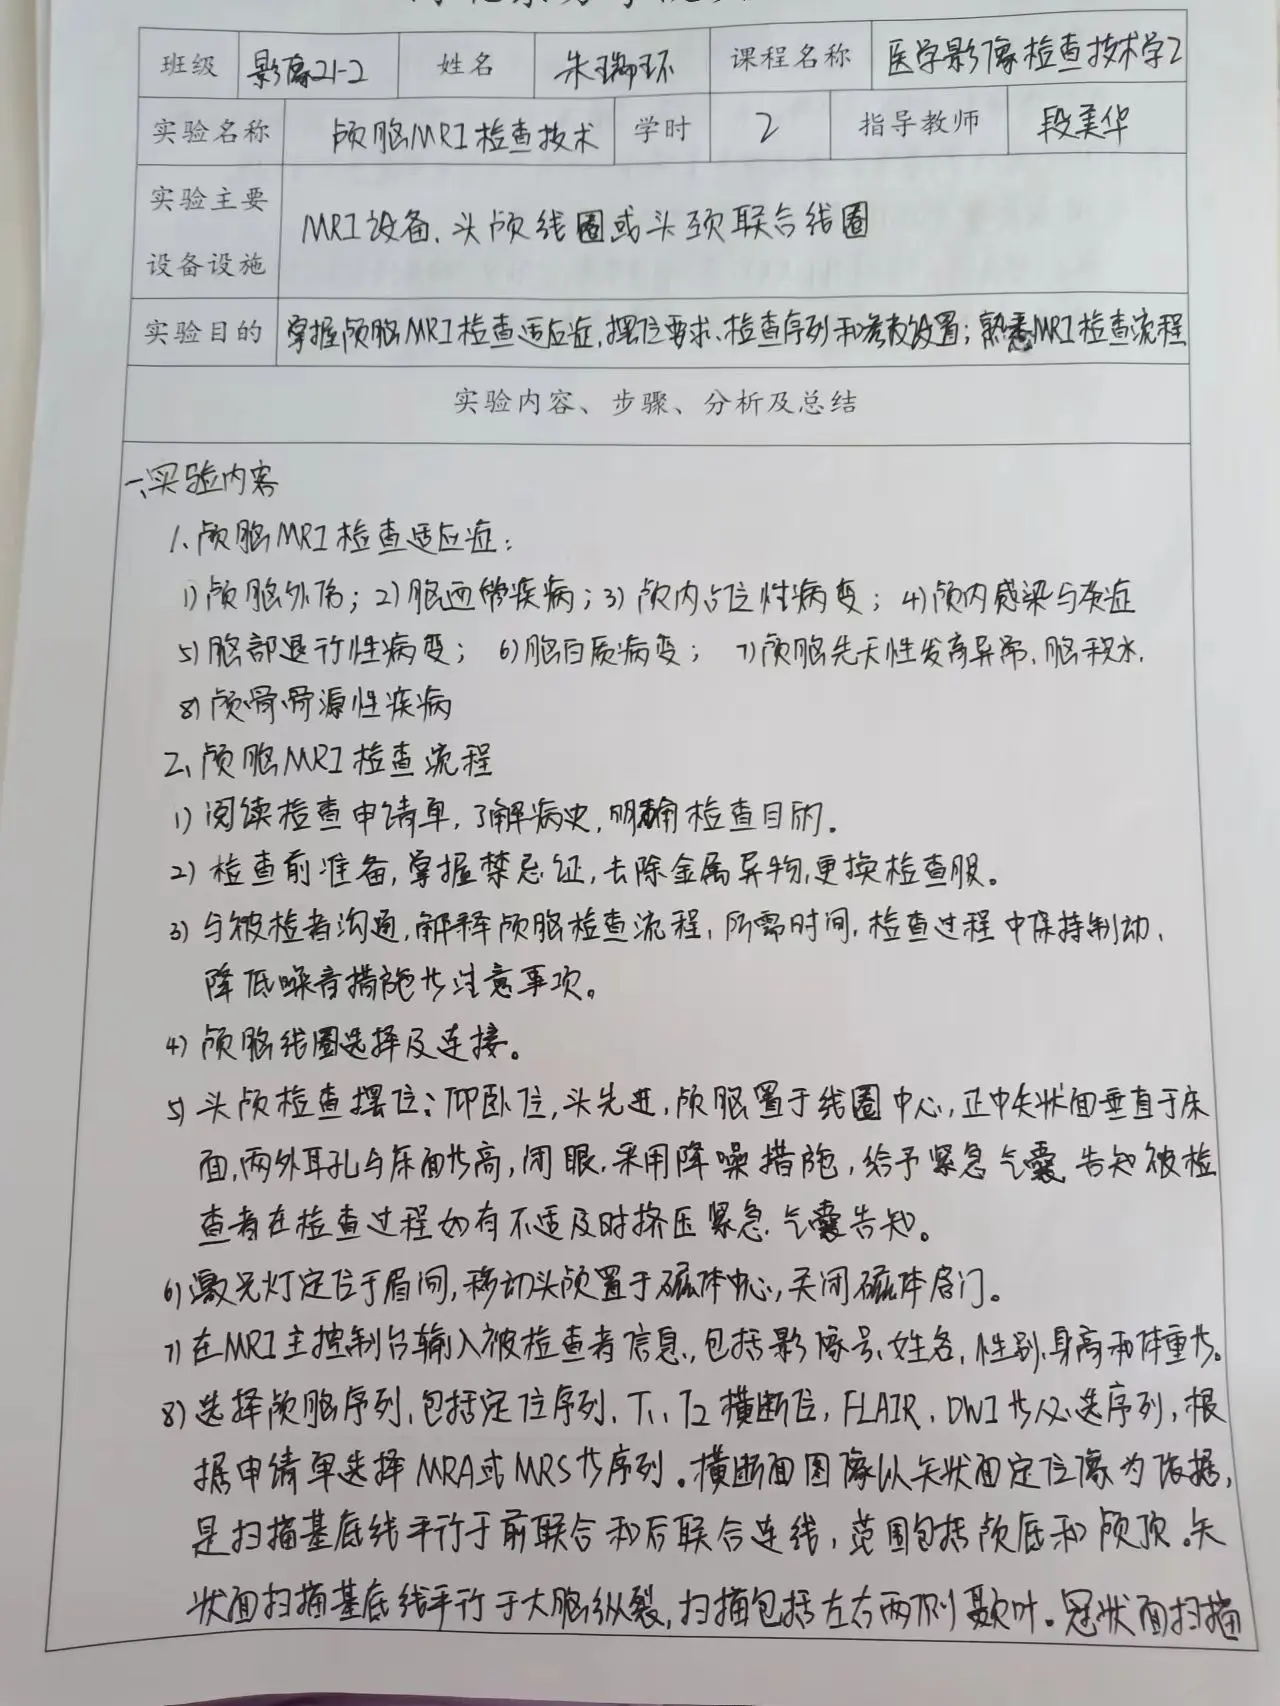 班级 影像21-2 姓名 朱瑞环 课程名称 医学影像检查技术学2
实验名称 颅脑MRI检查技术 学时 2 指导教师 段美华
实验主要
设备设施
MRI设备、头颅线圈或头颈联合线圈
实验目的 掌握颅脑MRI检查适应症、摆位要求、检查序列和参数设置；熟悉MRI检查流程
实验内容、步骤、分析及总结
一、实验内容
1、颅脑MRI检查适应症：
1)颅脑外伤；2)脑血管疾病；3)颅内占位性病变；4)颅内感染与炎症
5)脑部退行性病变；6)脑白质病变；7)颅脑先天性发育异常、脑积水、
8)颅骨骨源性疾病
2、颅脑MRI检查流程
1)阅读检查申请单，了解病史，明确检查目的。
2)检查前准备，掌握禁忌证，去除金属异物，更换检查服。
3)与被检者沟通，解释颅脑检查流程，所需时间，检查过程中保持制动、
降低噪音措施等注意事项。
4)颅脑线圈选择及连接。
5)头颅检查摆位：仰卧位，头先进，颅脑置于线圈中心，正中矢状面垂直于床
面，两外耳孔与床面等高，闭眼，采用降噪措施，给予紧急气囊，告知被检
查者在检查过程如有不适及时挤压紧急气囊告知。
6)激光灯定位于眉间，移动头颅置于磁体中心，关闭磁体房门。
7)在MRI主控制台输入被检查者信息，包括影像号、姓名，性别、身高和体重等。
8)选择颅脑序列，包括定位序列、T1、T2横断位，FLAIR、DWI等必选序列，根
据申请单选择MRA或MRS等序列。横断面图像以矢状面定位像为依据，
是扫描基底线平行于前联合和后联合连线，范围包括颅底和颅顶。矢
状面扫描基底线平行于大脑纵裂，扫描包括左右两侧颞叶。冠状面扫描